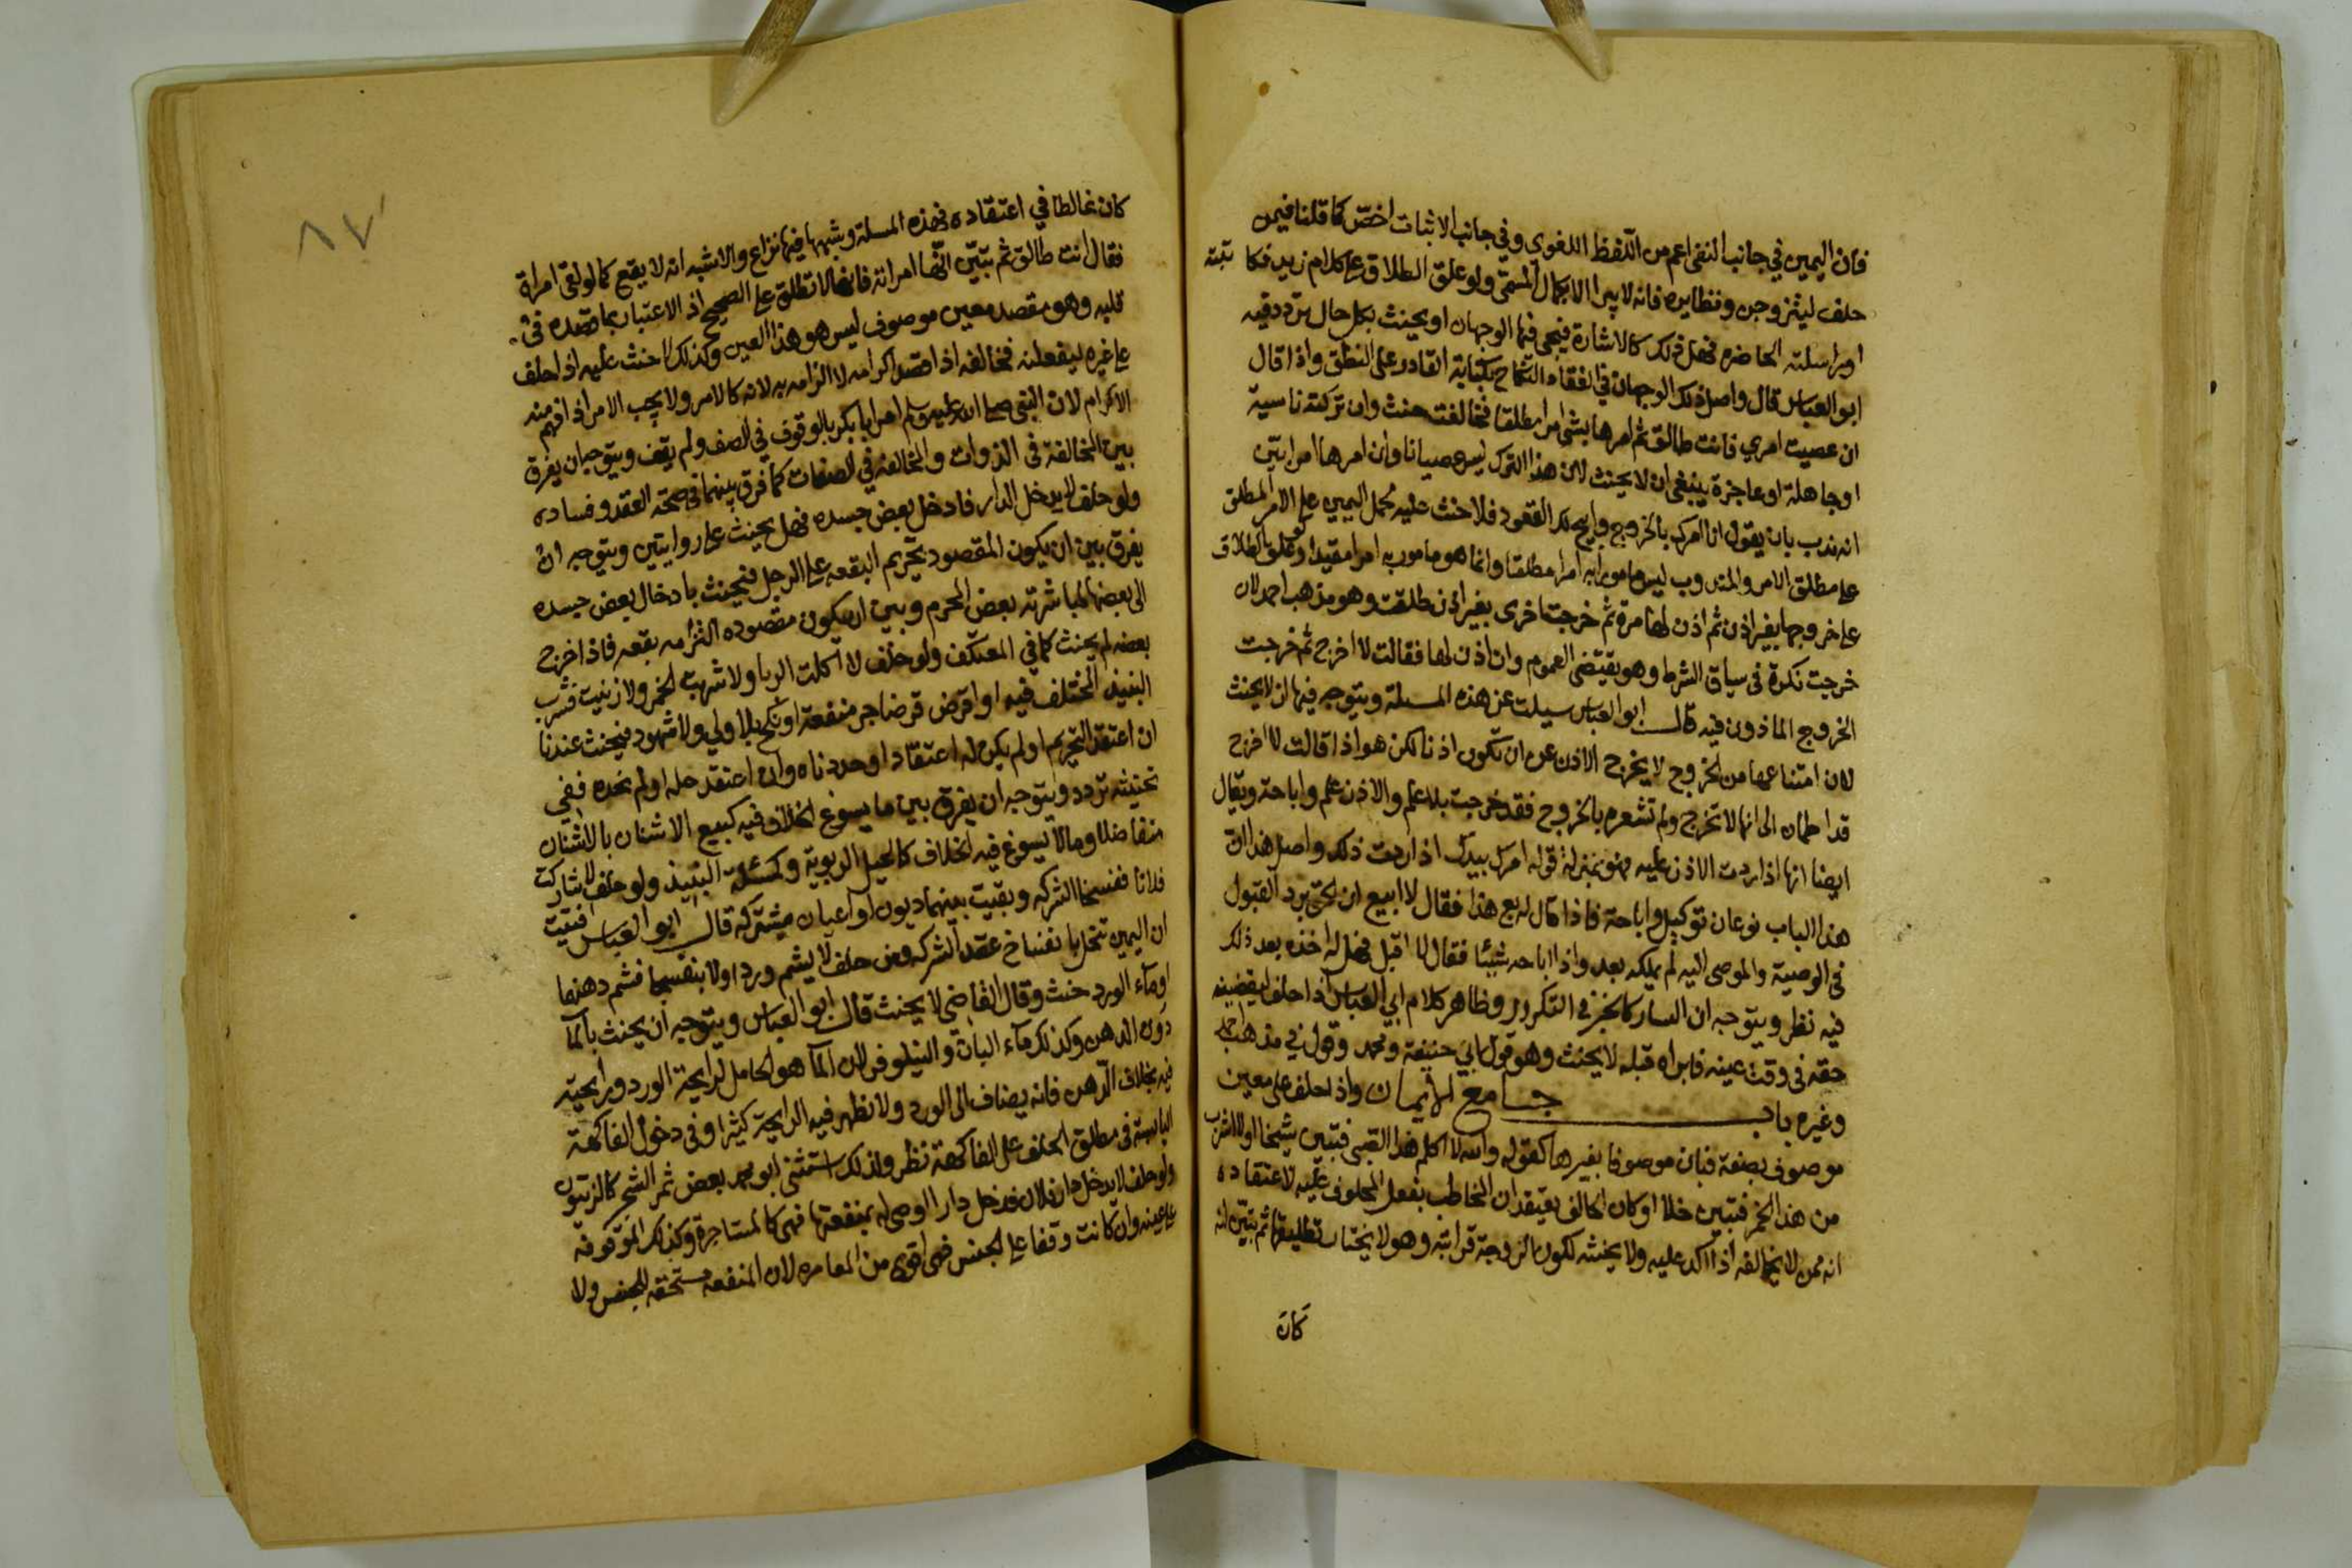 فان اليمين في جانب النفي اعم من اللفظ اللغوي وفي جانب الاثبات اخص كما قلنا فيمن
حلف ليتزوجن ونظايره فانه لا يبرا الا بكمال المسمى ولو علق الطلاق على كلام زيد فكاتبته
او راسلته الحاضره فهل ذلك كالاشارة فيجي فيها الوجهان او يحنث بكل حال تردد فيه
ابو العباس قال واصل ذلك الوجهان في انعقاد النكاح بكتابة القادر على النطق واذا قال
ان عصيت امري فانت طالق ثم امرها بشي امرا مطلقا فخالفت حنث وان تركته ناسية
او جاهلة او عاجزة ينبغي ان لا يحنث لان هذا الترك ليس عصيانا وان امرها امرا بين
انه ندب بان يقول انا امرك بالخروج وابيح لك القعود فلا حنث عليه لحمل اليمين على الامر المطلق
على مطلق الامر والمندوب ليس مامورا به امرا مطلقا وانما هو مامور به امرا مقيدا ولو علق الطلاق
على خروجها بغير اذن ثم اذن لها مرة ثم خرجت اخرى بغير اذن طلقت وهو مذهب احمد لان
خرجت نكرة في سياق الشرط وهو يقتضي العموم وان اذن لها فقالت لا اخرج ثم خرجت
الخروج الماذون فيه قال ابو العباس سيلت عن هذه المسلة ويتوجه فيها ان لا يحنث
لان امتناعها من الخروج لا يخرج الاذن عن ان يكون اذنا لكن هو اذا قالت لا اخرج
قد اطمان الى انها لا تخرج ولم تشعره بالخروج فقد خرجت بلا علم والاذن علم واباحة ويقال
ايضا انها اذا ردت الاذن عليه فهو بمنزلة قوله امرك بيدك اذا ردت ذلك واصل هذا ان
هذا الباب نوعان توكيل واباحة فاذا قال له بع هذا فقال لا ابيع ان لحق برد القبول
في الوصية والموصى اليه لم يملكه بعد واذا اباحه شيئا فقال لا اقبل فهل له اخذه بعد ذلك
فيه نظر ويتوجه ان السار كالخبز في التكرر وظاهر كلام ابي العباس اذا حلف ليقضينه
حقه في وقت عينه فابراه قبله لا يحنث وهو قول ابي حنيفة ومحمد وقول في مذهب احمد
وغيره باب جامع الايمان واذا حلف على معين
موصوف بصفة فبان موصوفا بغيرها كقوله والله لا اكلم هذا الصبي فتبين شيخا او لا اشرب
من هذا الخمر فتبين خلا او كان الحالف يعتقد ان المخاطب يفعل المحلوف عليه لاعتقاده
انه ممن لا يخالفه اذا اكد عليه ولا يحنثه لكون الزوجة قرابته وهو لا يختار تطليقها ثم تبين انه
كان
كان غالطا في اعتقاده فهذه المسلة وشبهها فيها نزاع والاشبه انه لا يقع كما لو لقي امراة
فقال انت طالق ثم تبين انها امراته فانها لا تطلق على الصحيح اذ الاعتبار بما قصده في
قلبه وهو مقصد معين موصوف ليس هو هذا العين وكذلك لا حنث عليه اذا حلف
على غيره ليفعلنه فخالفه اذا قصد اكرامه لا الزامه به لانه كالامر ولا يجب الامر اذا فهم منه
الاكرام لان النبي صلى الله عليه وسلم امر ابا بكر بالوقوف في الصف ولم يقف ويتوجه ان يفرق
بين المخالفة في الذوات والمخالفة في الصفات كما فرق بينهما في صحة العقد وفساده
ولو حلف لا يدخل الدار فادخل بعض جسده فهل يحنث على روايتين ويتوجه ان
يفرق بين ان يكون المقصود تحريم البقعه على الرجل فيحنث بادخال بعض جسده
الى بعضها لمباشرته بعض المحرم وبين ان يكون مقصوده التزامه بقعه فاذا اخرج
بعضه لم يحنث كما في المعتكف ولو حلف لا اكلت الربا ولا شربت الخمر ولا زنيت فشرب
النبيذ المختلف فيه او اقرض قرضا جر منفعة او نكح بلا ولي ولا شهود فيحنث عندنا
ان اعتقد التحريم او لم يكن له اعتقاد او حددناه وان اعتقد حله او لم نحده ففي
تحنيثه تردد ويتوجه ان يفرق بين ما يسوغ الخلاف فيه كبيع الاشنان بالاشنان
متفاضلا وما لا يسوغ فيه الخلاف كالحيل الربوية وكمسئلة النبيذ ولو حلف لا شاركت
فلانا ففسخا الشركه وبقيت بينهما ديون او اعيان مشتركه قال ابو العباس افتيت
ان اليمين تنحل بانفساخ عقد الشركه ومن حلف لا يشم وردا ولا بنفسجا فشم دهنهما
او ماء الورد حنث وقال القاضي لا يحنث قال ابو العباس ويتوجه ان يحنث بالما
دون الدهن وكذلك ماء البان والنيلوفر لان الما هو الحامل لرايحة الورد ورايحته
فيه بخلاف الدهن فانه يضاف الى الورد ولا تظهر فيه الرايحة كثيرا وفي دخول الفاكهة
اليابسة في مطلق الحلف على الفاكهة نظر ولذلك استثنى ابو محمد بعض ثمر الشجر كالزيتون
ولو حلف لا يدخل دار فلان فدخل دارا اوصى له بمنفعتها فهي كالمستاجرة وكذلك الموقوفه
على عينه وان كانت وقفا على الجنس فهي اقوى من المعاره لان المنفعه مستحقه للجنس ولا